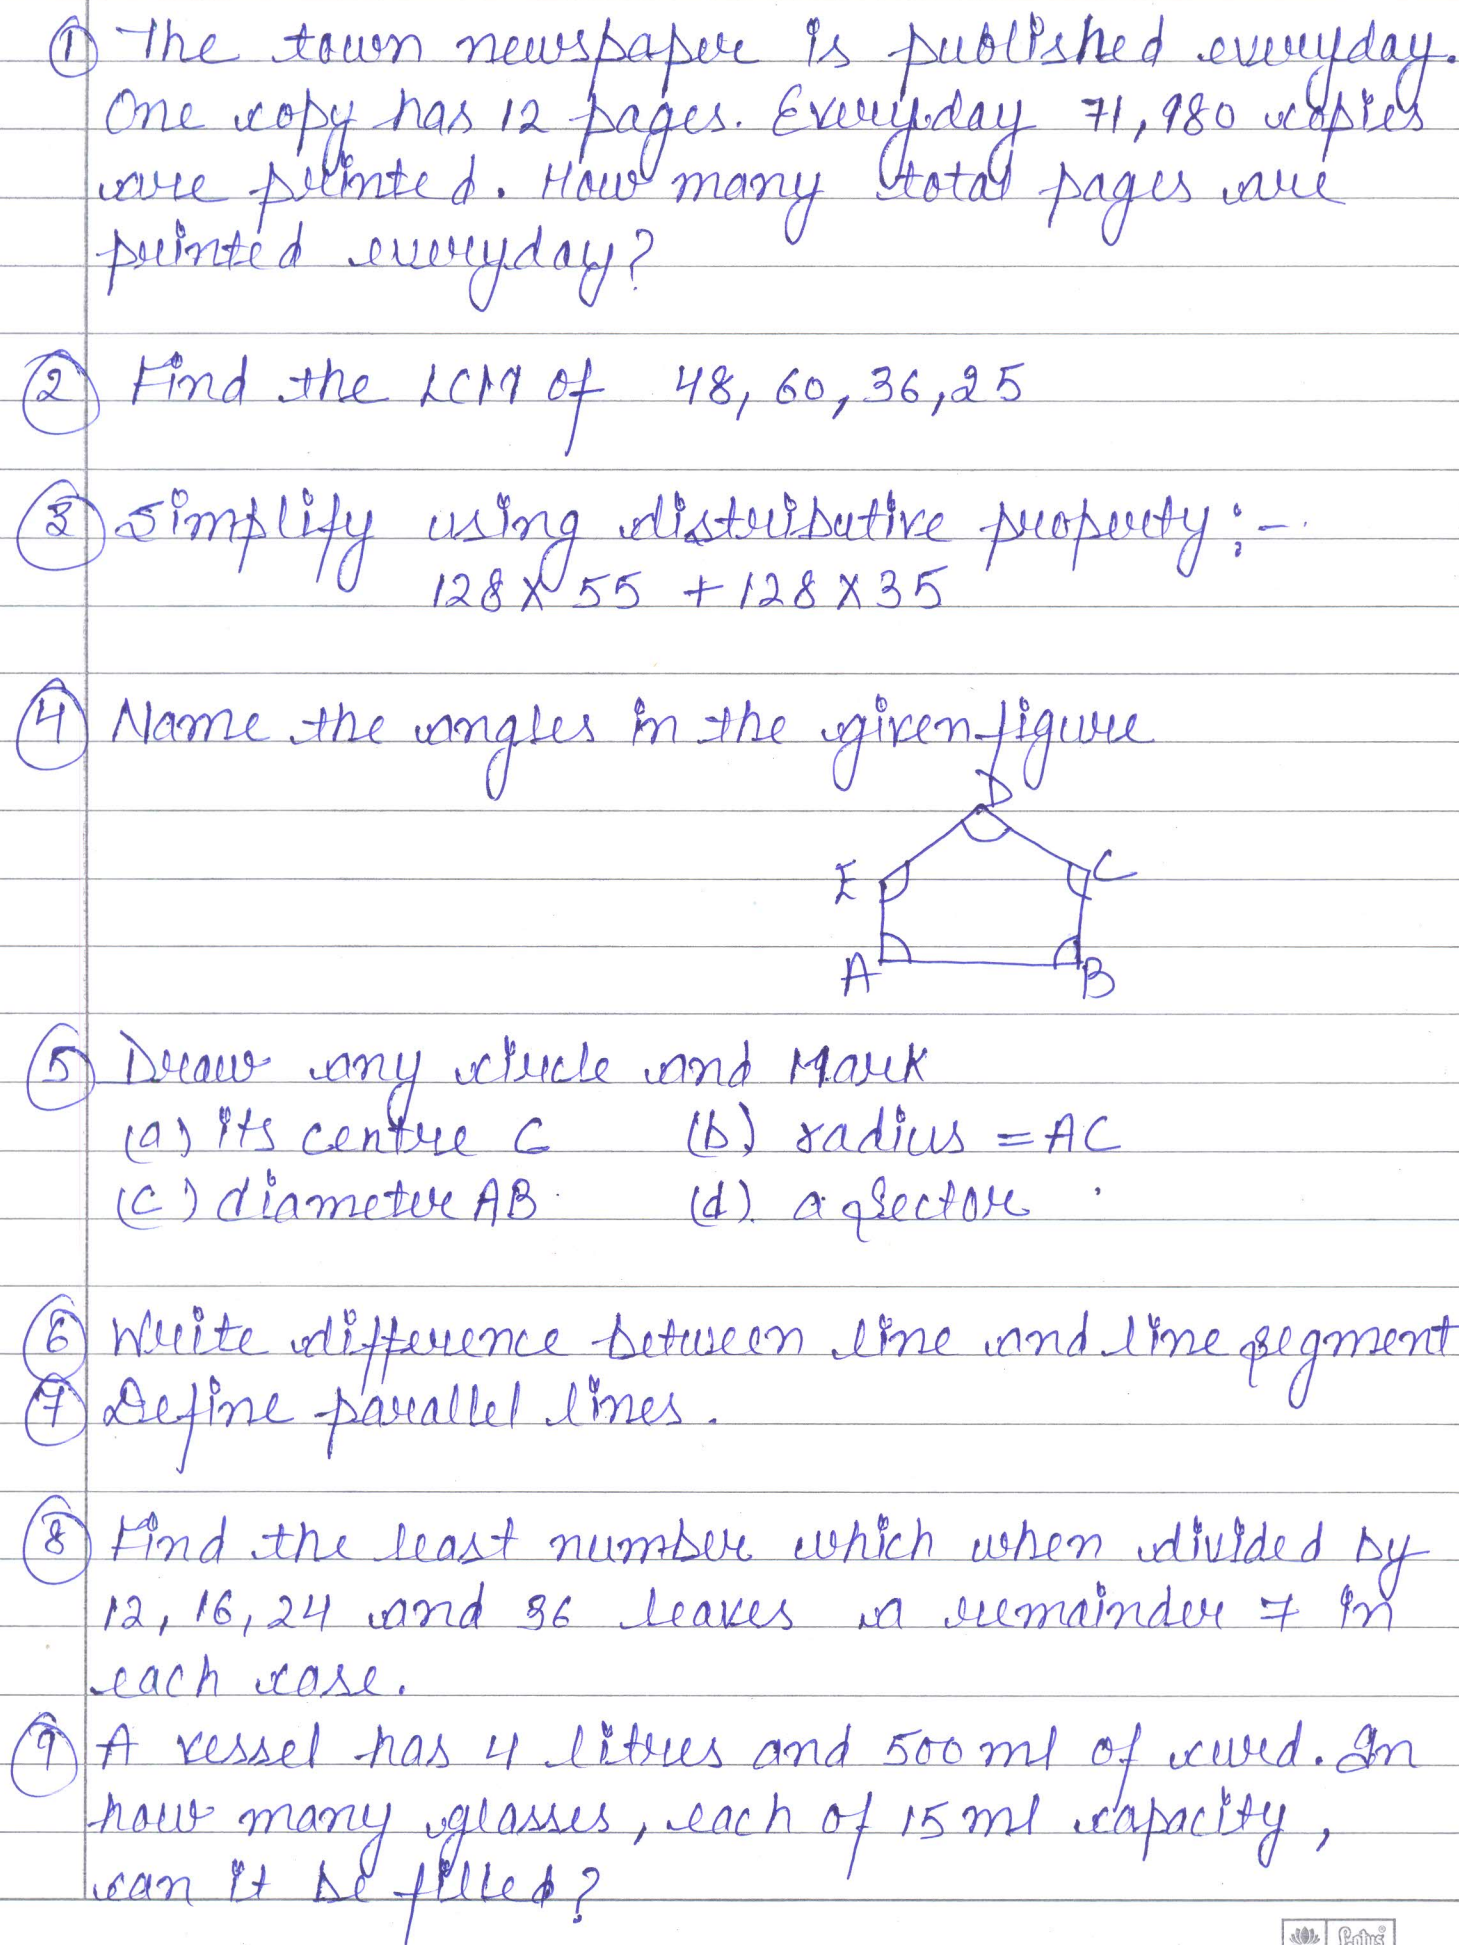 ① The town newspaper is published everyday.
One copy has 12 pages. Everyday 71,980 copies
are printed. How many total pages are
printed everyday?
② Find the LCM of 48, 60, 36, 25
③ Simplify using distributive property :-
128 × 55 + 128 × 35
④ Name the angles in the given figure
D
E C
A B
⑤ Draw any circle and Mark
(a) its centre C (b) radius = AC
(c) diameter AB (d) a sector
⑥ Write difference between line and line segment
⑦ Define parallel lines.
⑧ Find the least number which when divided by
12, 16, 24 and 36 leaves a remainder 7 in
each case.
⑨ A vessel has 4 litres and 500 ml of curd. In
how many glasses, each of 15 ml capacity,
can it be filled?
Lotus